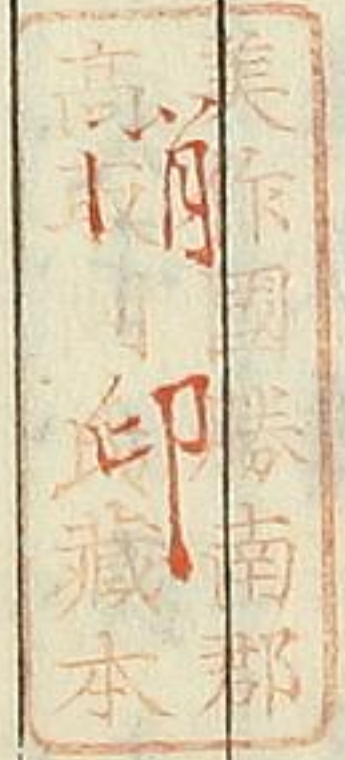 美作國勝南郡
高取藏本
消印